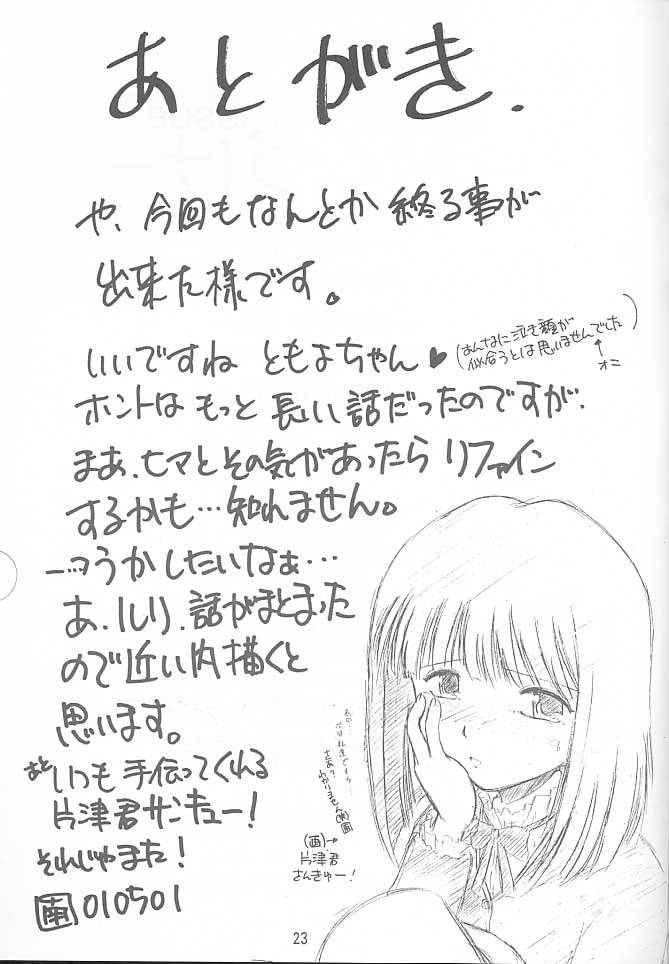 あとがき.
や、今回もなんとか終る事が
出来た様です。
いいですね ともよちゃん♥
(あんなに泣き顔が
似合うとは思いませんでした)
↑
オニ
ホントは もっと 長い話だったのですが.
まあ、ヒマとその気があったら リファイン
するかも…知れません。
―つうかしたいなぁ…
あ、しり、話がまとまった
ので近い内描くと
思います。
あと いつも 手伝ってくれる
片津君サンキュー!
それじゃまた!
010501
さあ?
わかりません
→
片津君
さんきゅー!
23